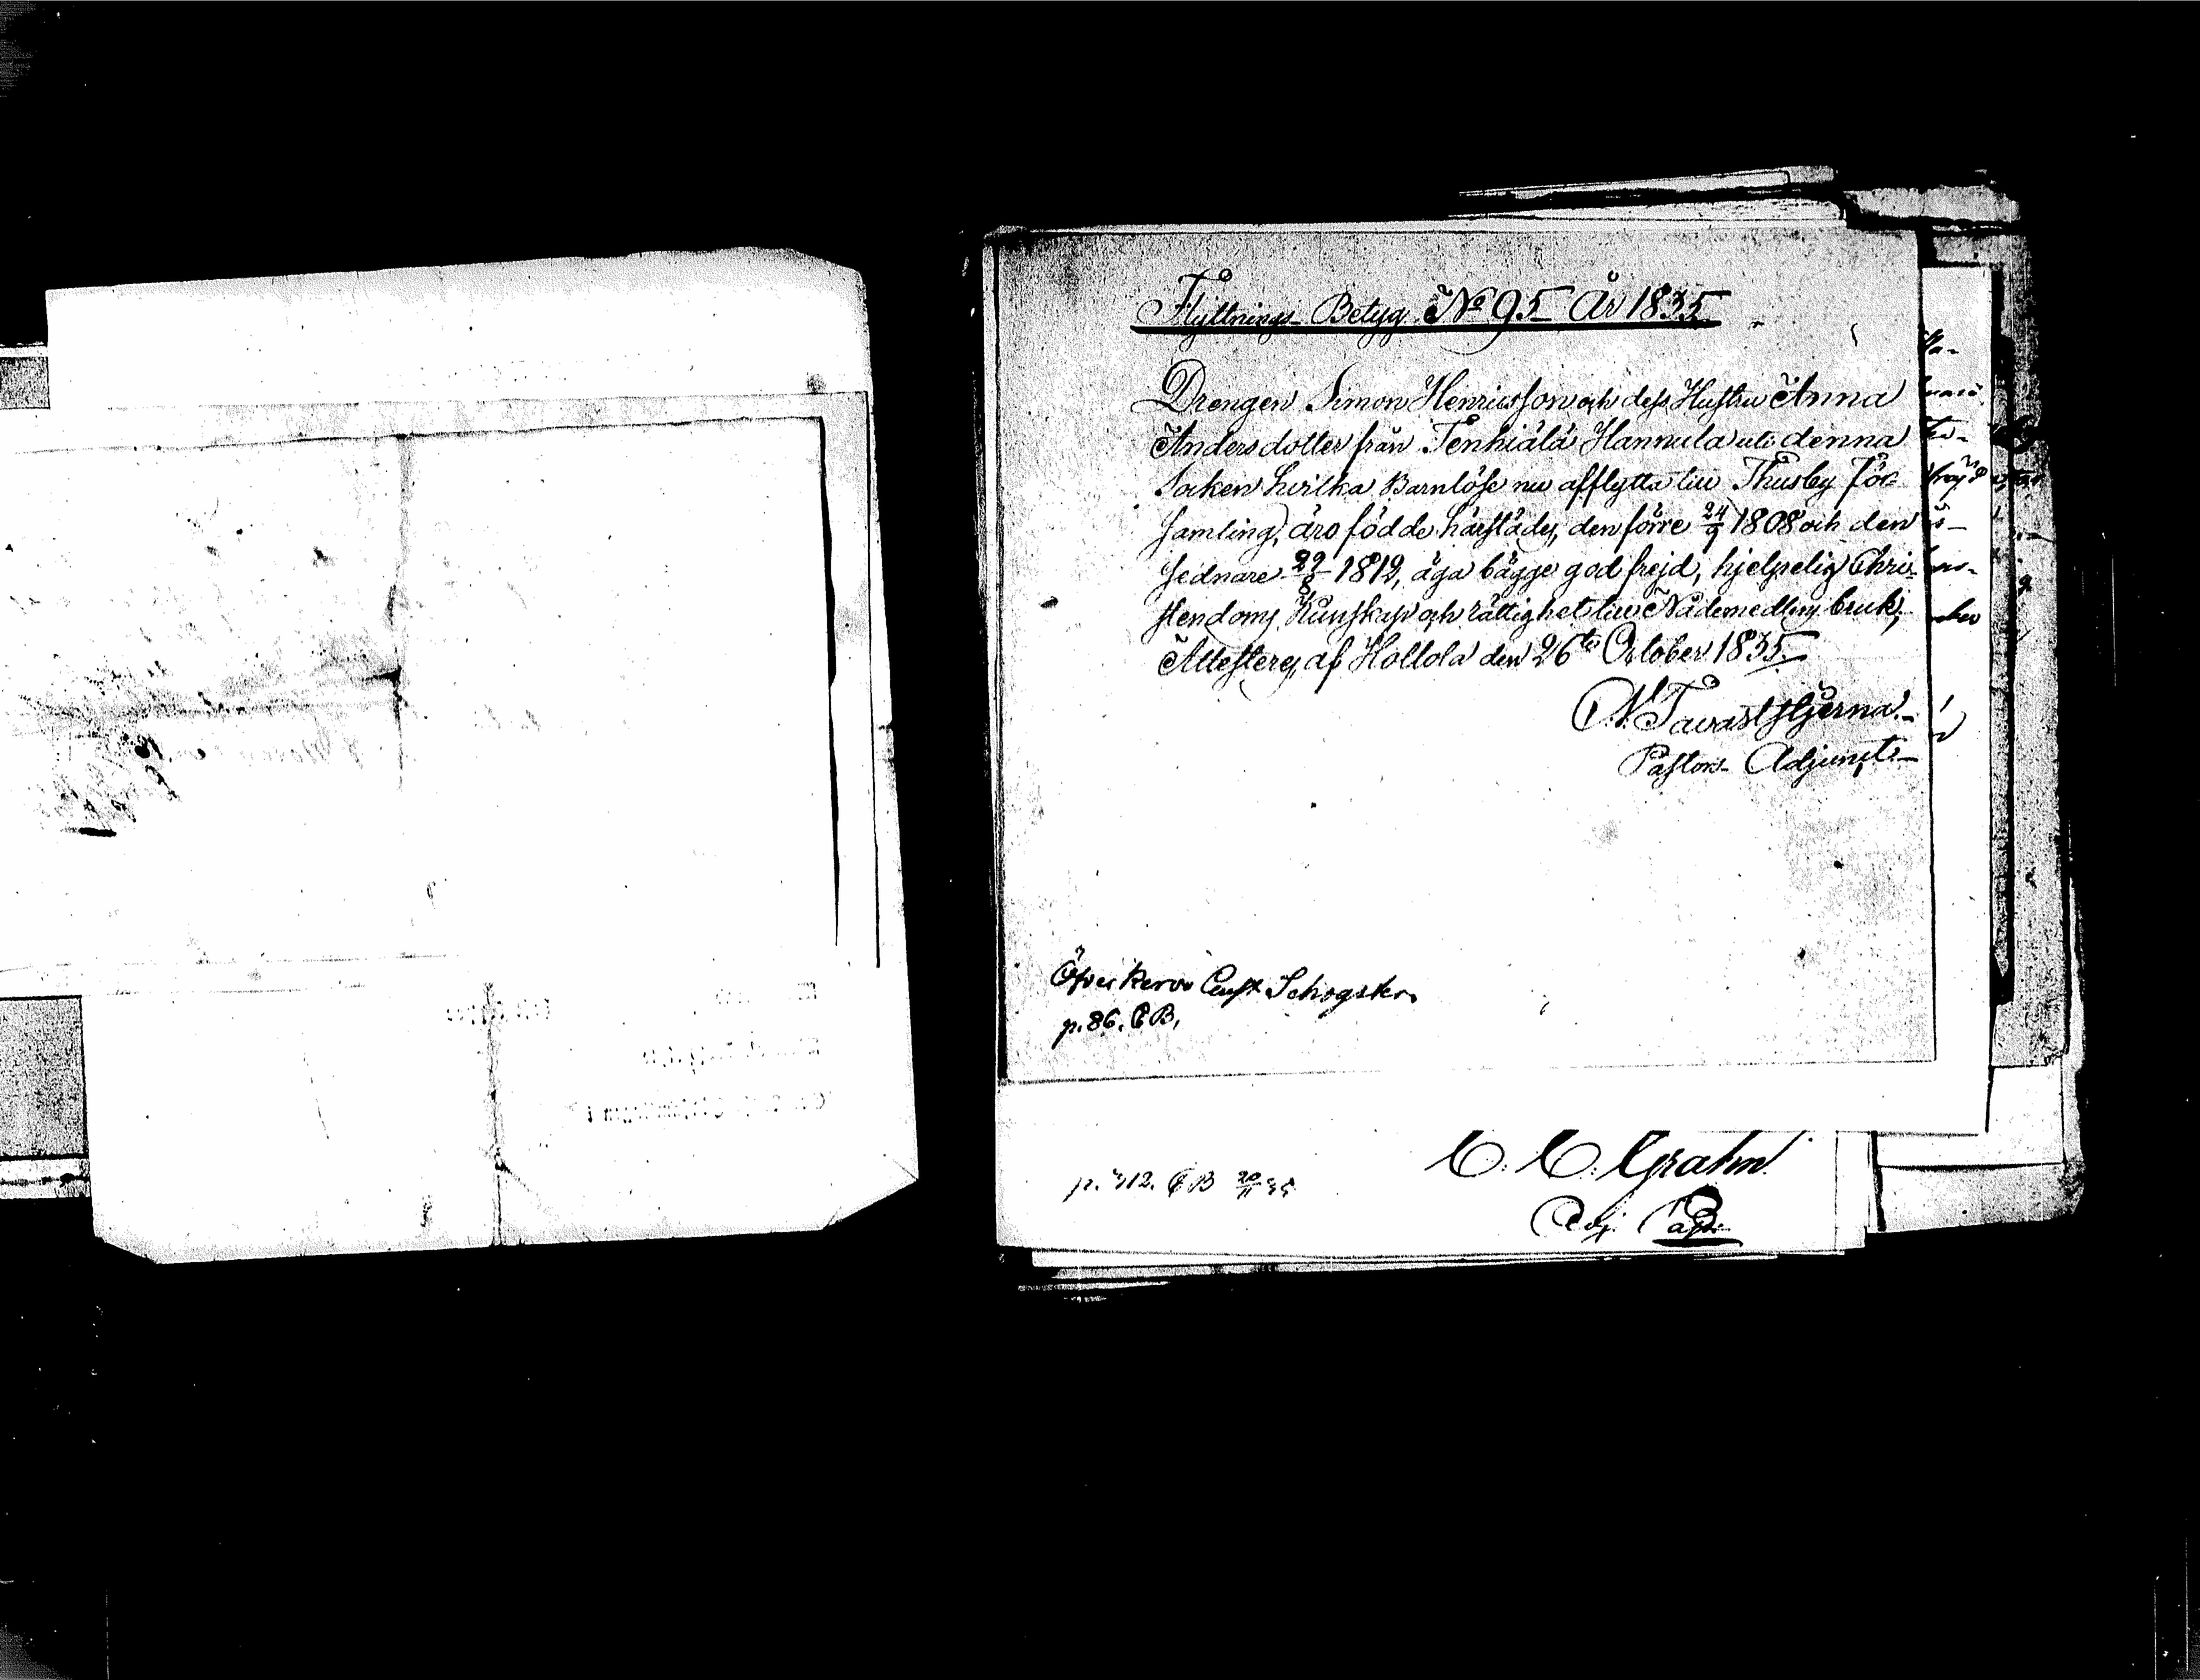 Flyttnings-Betyg No 95 År 1835
Drengen Simon Henricsson och dess Hustru Anna
Andersdotter från Tenhiälä Hannula uti denna
Socken hvilka Barnlöse nu afflytta till Thusby För-
samling, äro födde härstädes, den förre 24/9 1808 och den
sednare 29/8 1812, äga bägge god frejd, hjelpelig Chri-
stendoms Kunskap och rättighet till Nådemedlens bruk,
Attesteras af Hollola den 26te October 1835.
N. Tavaststjerna.
Pastors-Adjunct
Öfver Kervo Schogster
p. 86. CB,
C. C. Grahn
p. 312. CB 20/11 35
Adj. Past.